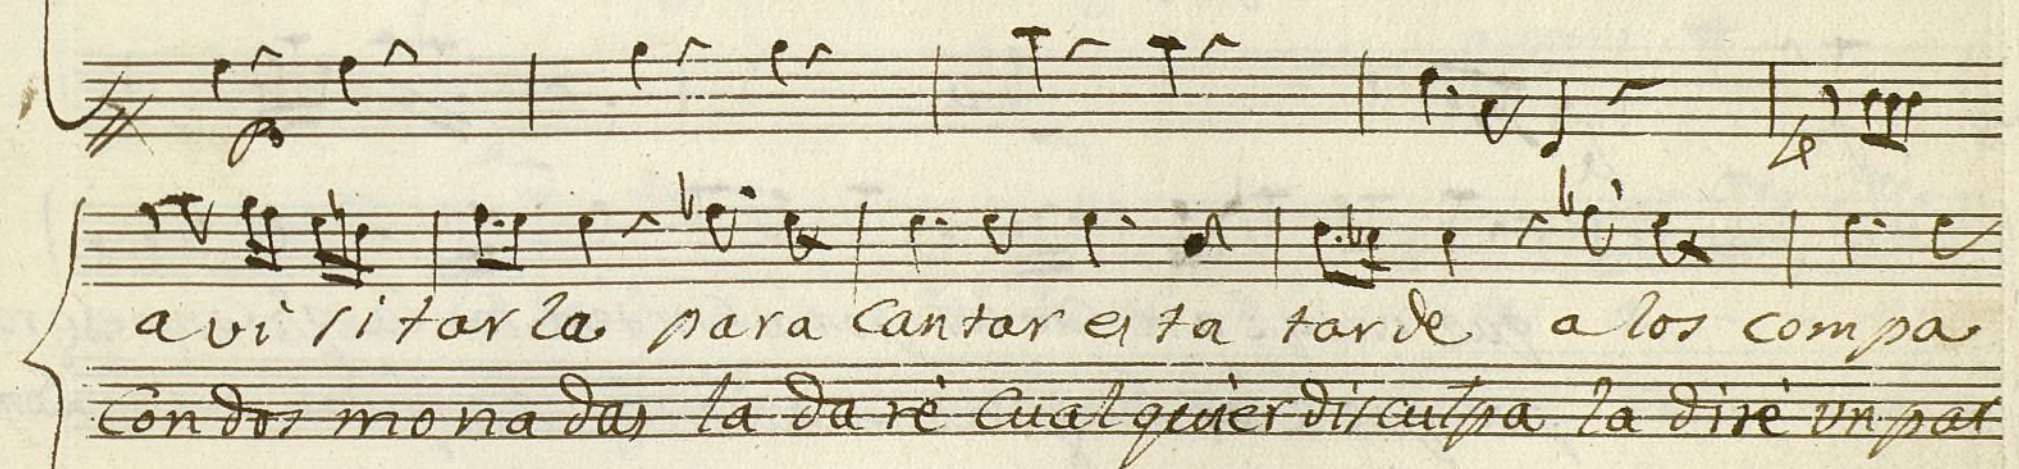 p
4
a visitarla para cantar esta tarde a los compa
Con dos monadas la daré cualquier disculpa la diré un pat